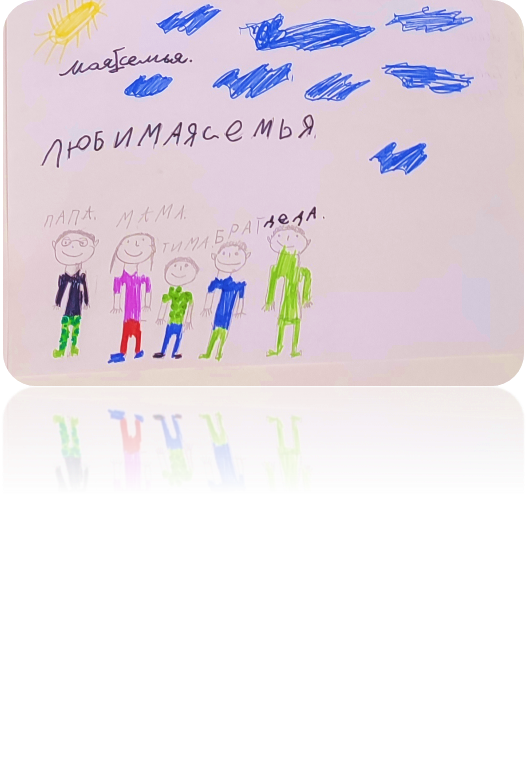 Моя семья.
ЛЮБИМАЯ СЕМЬЯ
ПАПА. МАМА. ТИМА. БРАТ ДЕДА.